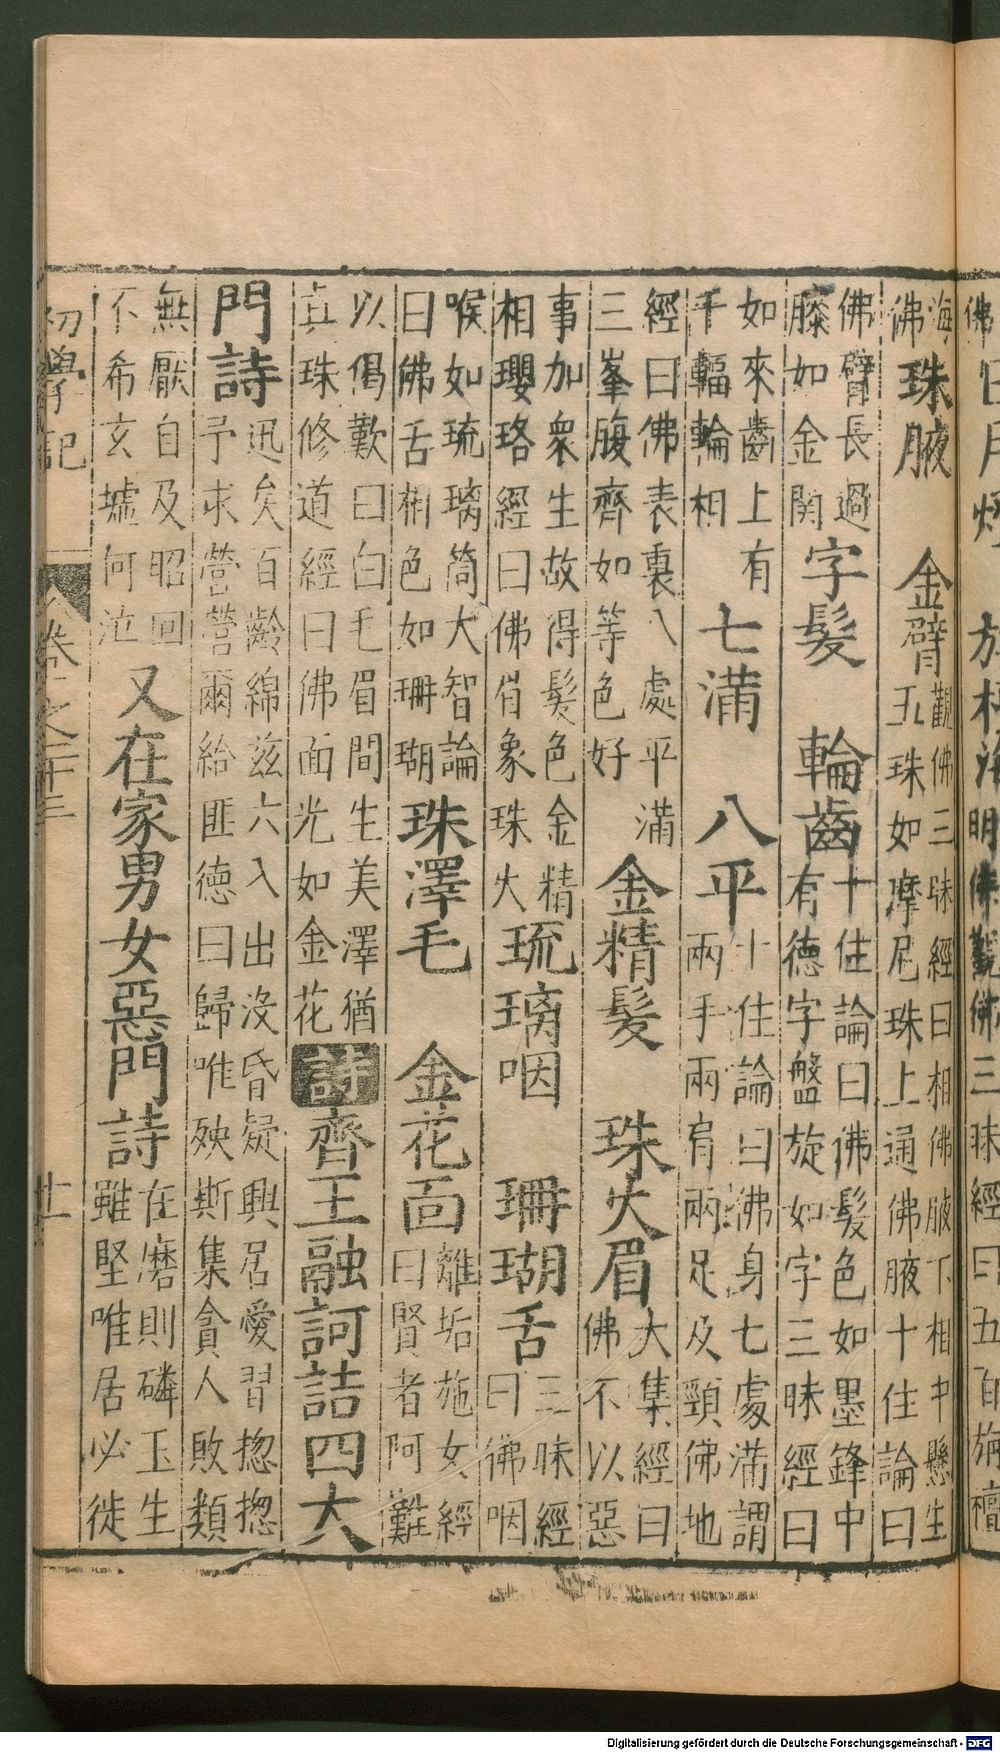 佛日月燈 旃檀海明佛觀佛三昧經曰五百旃檀
海佛珠腋 金臂觀佛三昧經曰相佛腋下相中懸生五珠如摩尼珠上通佛腋十住論曰
佛臂長過膝如金関字髮 輪齒十住論曰佛髮色如墨鋒中有德字盤旋如字三昧經曰
如來齒上有千輻輪相七滿 八平十住論曰佛身七處滿謂兩手兩肩兩足及頸佛地
經曰佛表裏八處平滿三峯腹齊如等色好金精髮 珠火眉大集經曰佛不以惡
事加衆生故得髮色金精相瓔珞經曰佛眉象珠火琉璃咽 珊瑚舌三昧經曰佛咽
喉如琉璃筒大智論曰佛舌相色如珊瑚珠澤毛 金花面離垢施女經曰賢者阿難
以偈歎曰白毛眉間生美澤猶真珠修道經曰佛面光如金花詩齊王融訶詰四大
門詩迅矣百齡綿兹六入出沒昏疑興居愛習惚惚予求營營爾給匪德曰歸唯殃斯集貪人敗類
無厭自及昭回不希玄墟何泣又在家男女惡門詩在磨則磷玉生雖堅唯居必徙
初學記 卷之二十三 廿一
Digitalisierung gefördert durch die Deutsche Forschungsgemeinschaft - DFG